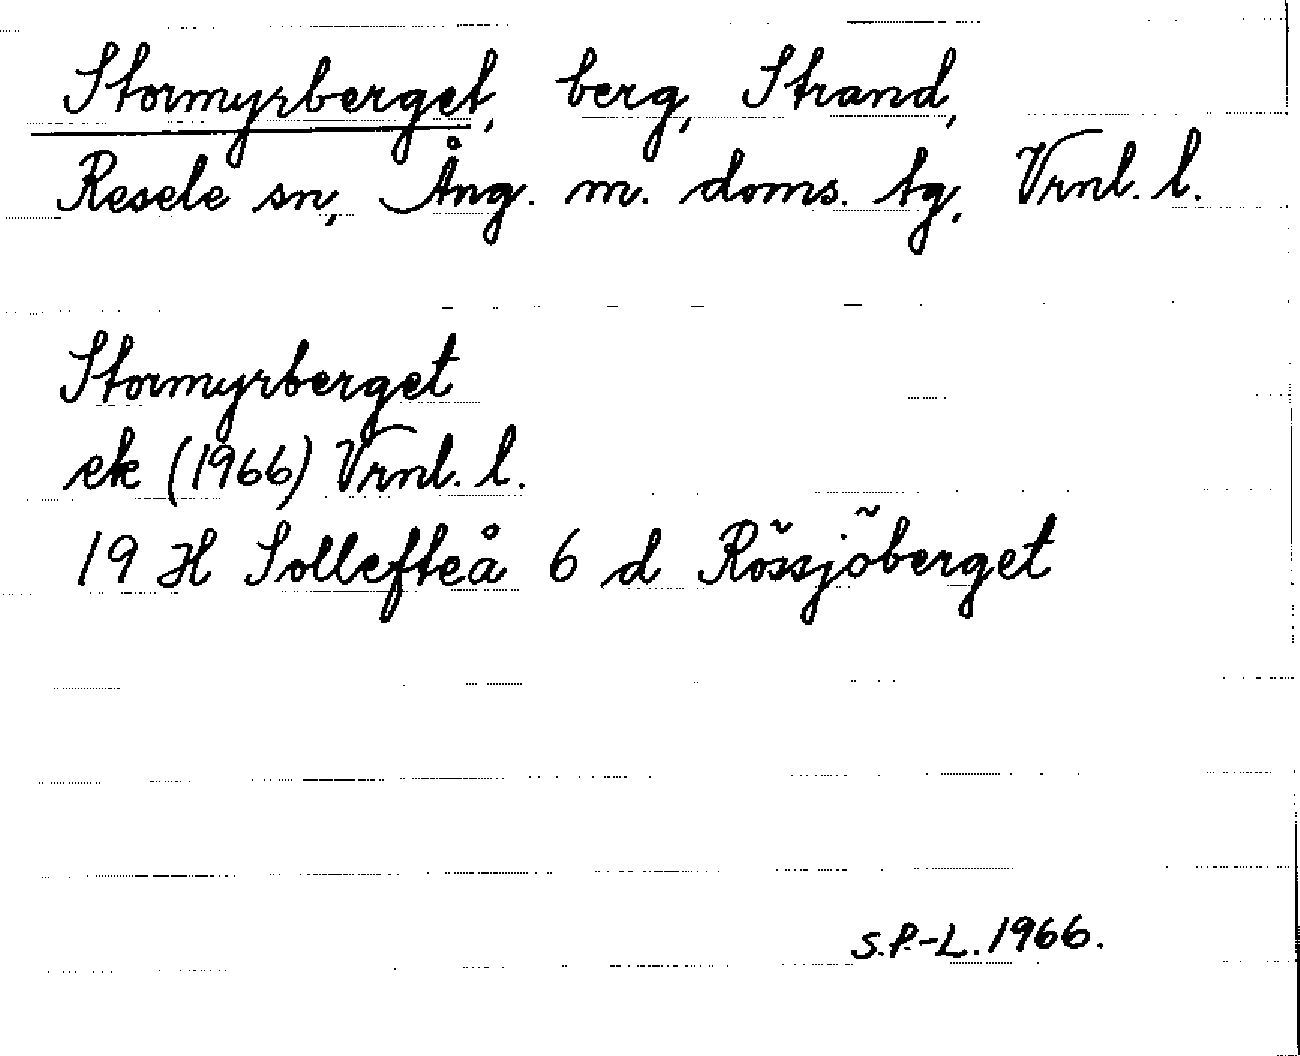 Stormyrberget, berg, Strand,
Resele sn, Ång. m. doms. tg, Vrnl. l.
Stormyrberget
ek (1966) Vrnl. l.
19 H Sollefteå 6 d Rössjöberget
S.P.-L. 1966.